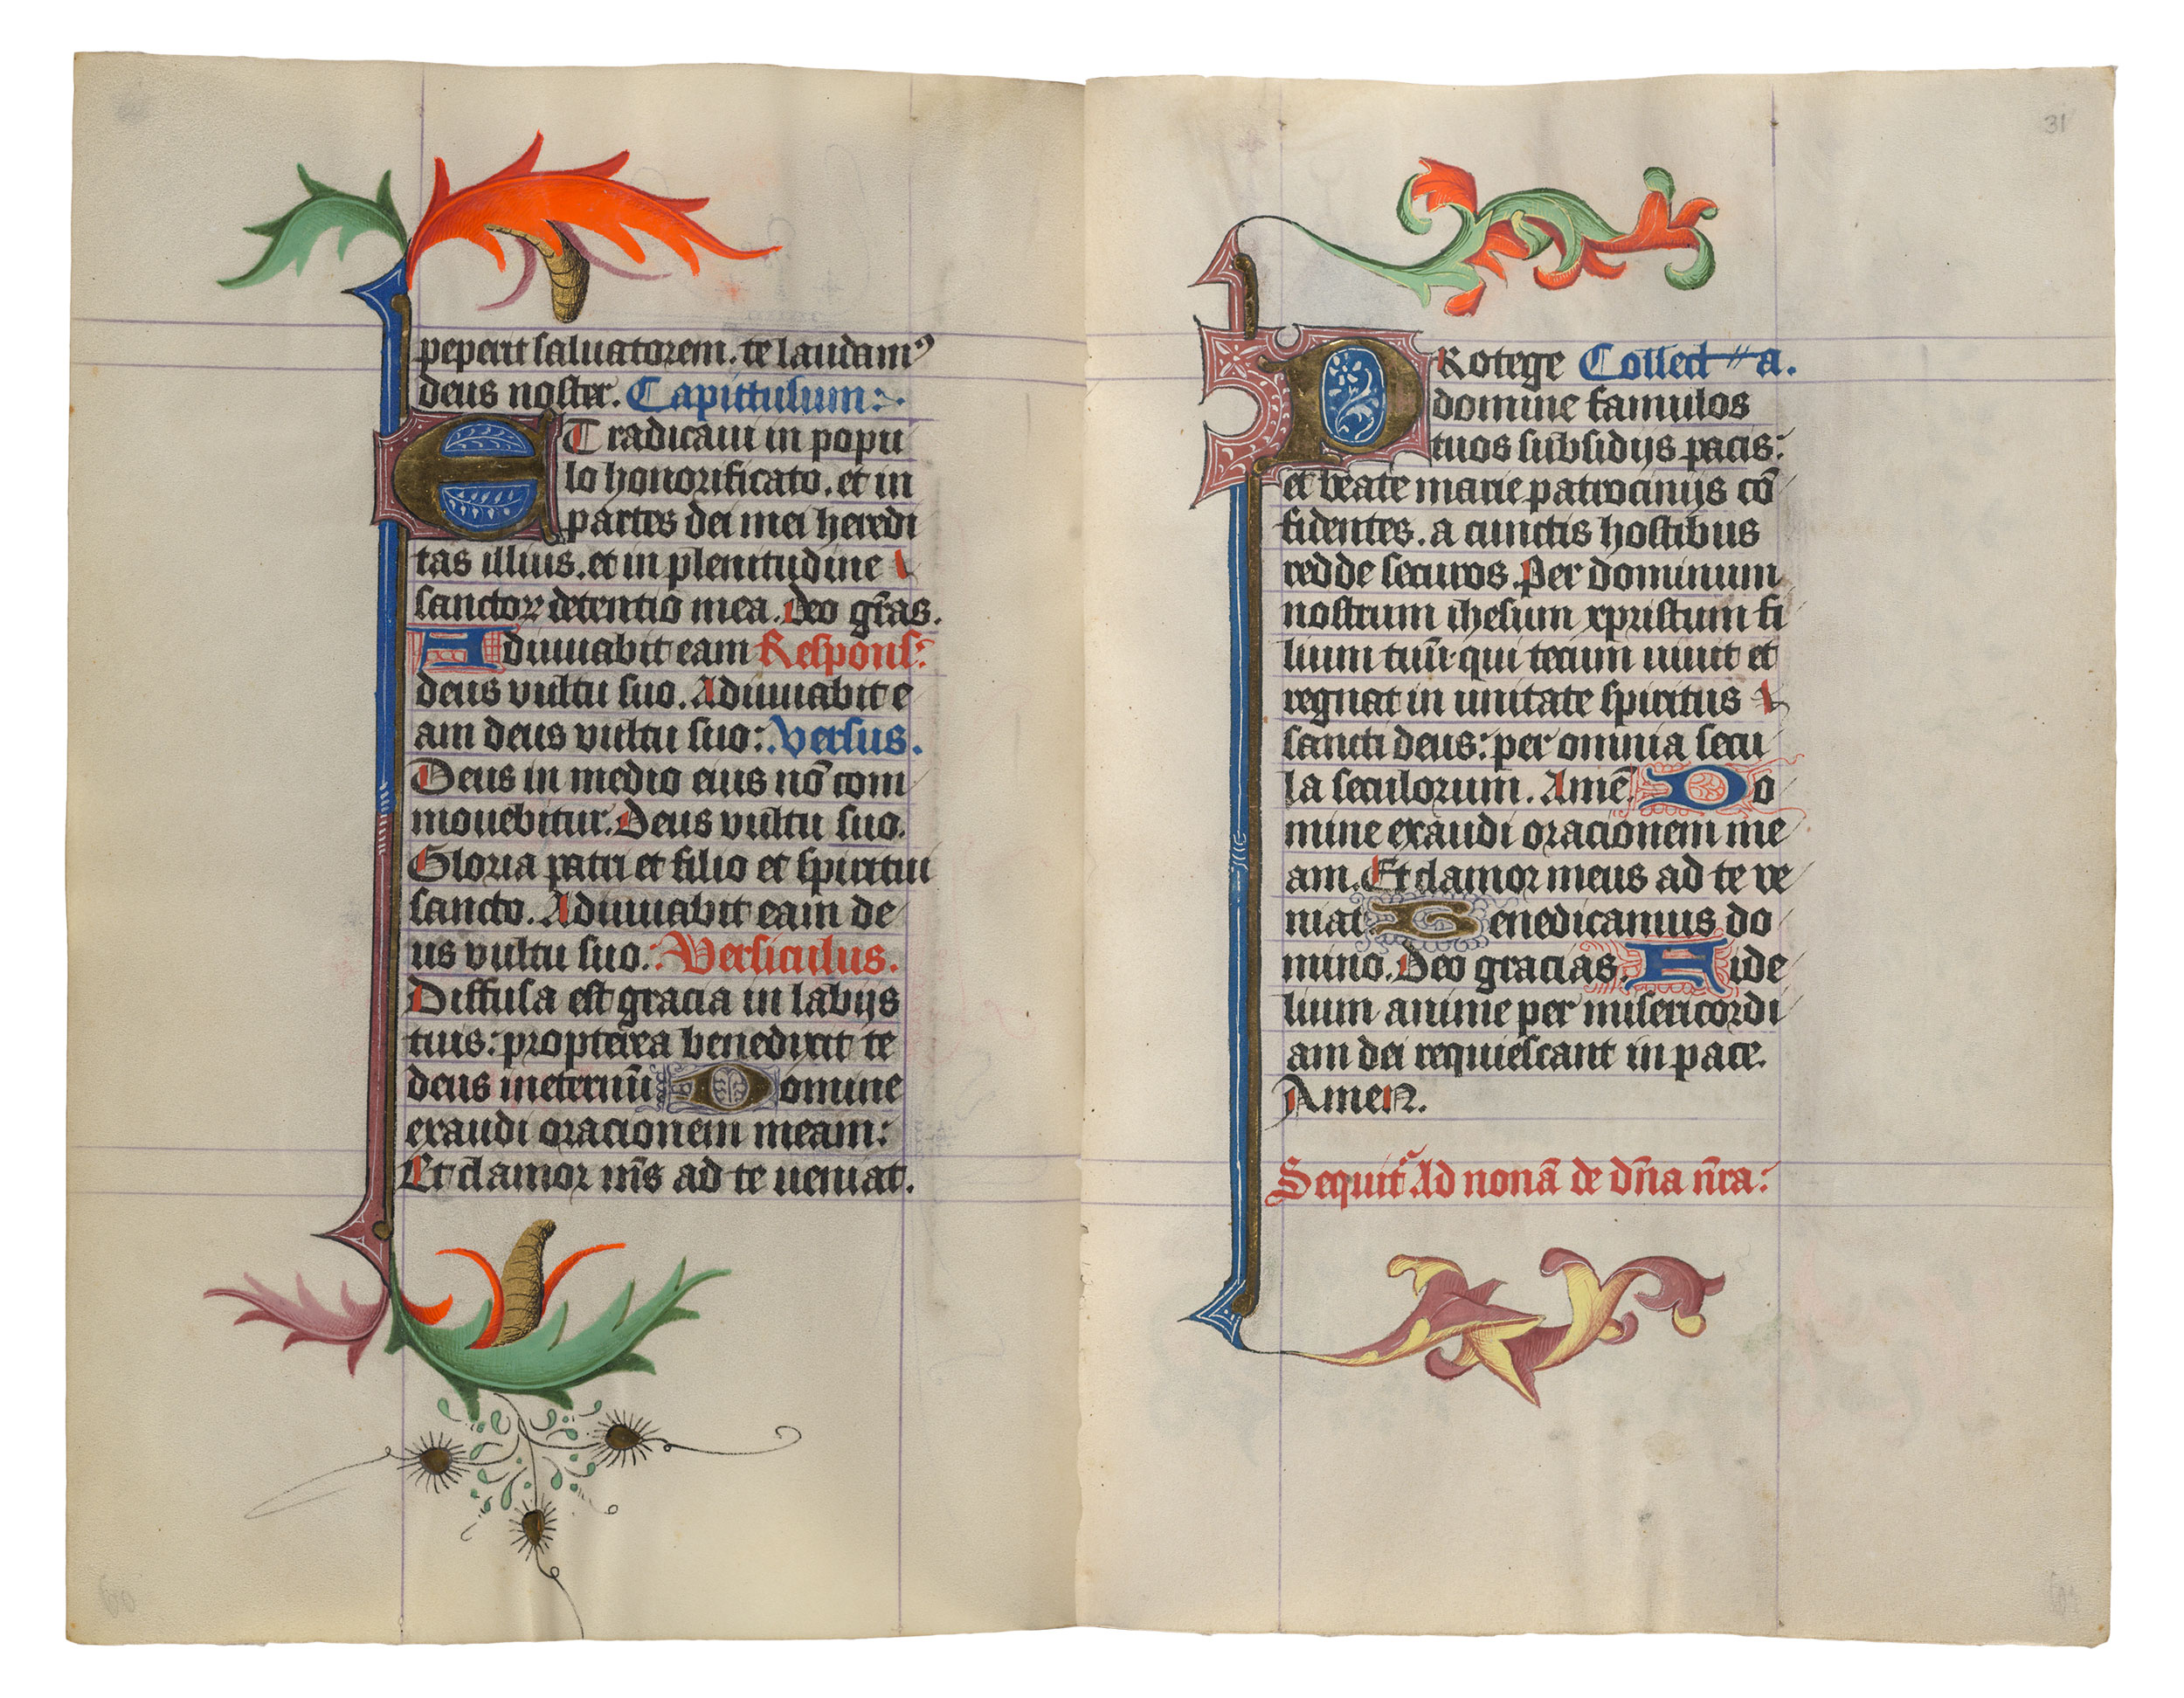 peperit saluatorem. te laudamꝰ
deus noster. Capittulum:
ET radicaui in popu
lo honorificato. et in
partes dei mei heredi
tas illius. et in plenitudine
sanctoꝝ detentio mea. Deo gr̄as.
Adiuuabit eam Respons:
deus vultu suo. Adiuuabit e
am deus vultu suo: Versus.
Deus in medio eius nō com
mouebitur. Deus vultu suo.
Gloria patri et filio et spiritui
sancto. Adiuuabit eam de
us vultu suo: Versiculus.
Diffusa est gracia in labijs
tuis: propterea benedixit te
deus ineternū Domine
exaudi oracionem meam:
Et clamor me̅s ad te ueniat.
31
PRotege Collect a.
domine famulos
tuos subsidijs pacis:
et beate marie patrocinijs cō
fidentes. a cunctis hostibus
redde securos. Per dominum
nostrum ihesum xpristum fi
lium tuū qui tecum uiuit et
regnat in unitate spiritus
sancti deus: per omnia secu
la seculorum. Amē. Do
mine exaudi oracionem me
am. Et clamor meus ad te ve
niat Benedicamus do
mino. Deo gracias. Fide
lium anime per misericordi
am dei requiescant in pace.
AmeN.
Sequit̉ Ad nonā de dn̄a nr̄a: